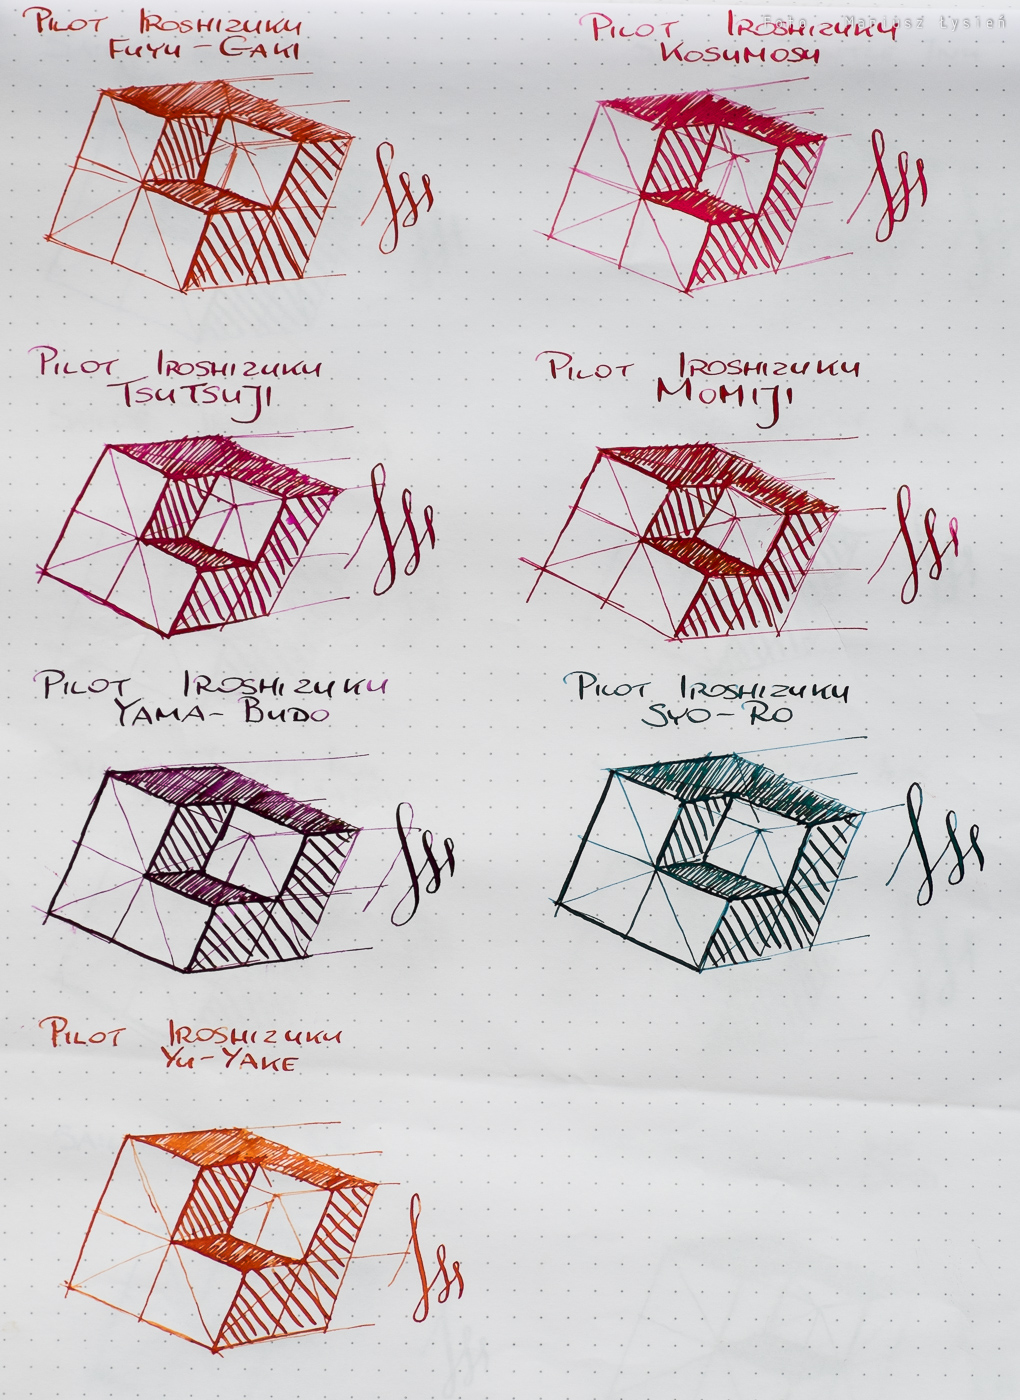 Foto: Mariusz Łysień
PILOT IROSHIZUKU
FUYU-GAKI
PILOT IROSHIZUKU
KOSUMOSU
PILOT IROSHIZUKU
TSUTSUJI
PILOT IROSHIZUKU
MOMIJI
PILOT IROSHIZUKU
YAMA-BUDO
PILOT IROSHIZUKU
SYO-RO
PILOT IROSHIZUKU
YU-YAKE